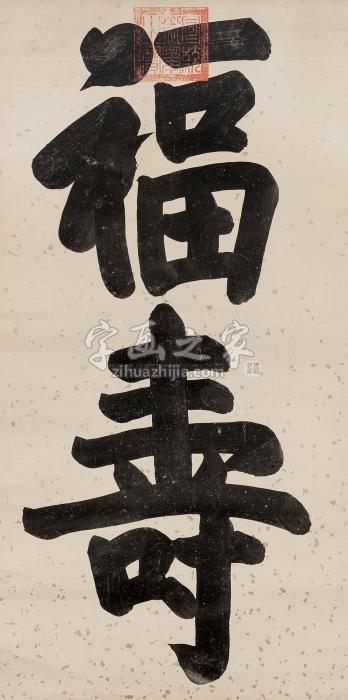 福
壽
字画之家
zihuazhijia.com